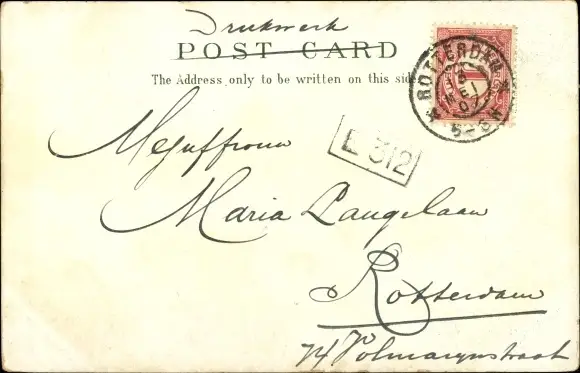 Drukwerk
POST CARD
The Address only to be written on this side
ROTTERDAM
5-6N
E 312
Mejuffrouw
Maria Langelaan
Rotterdam
74 Volmarijnstraat